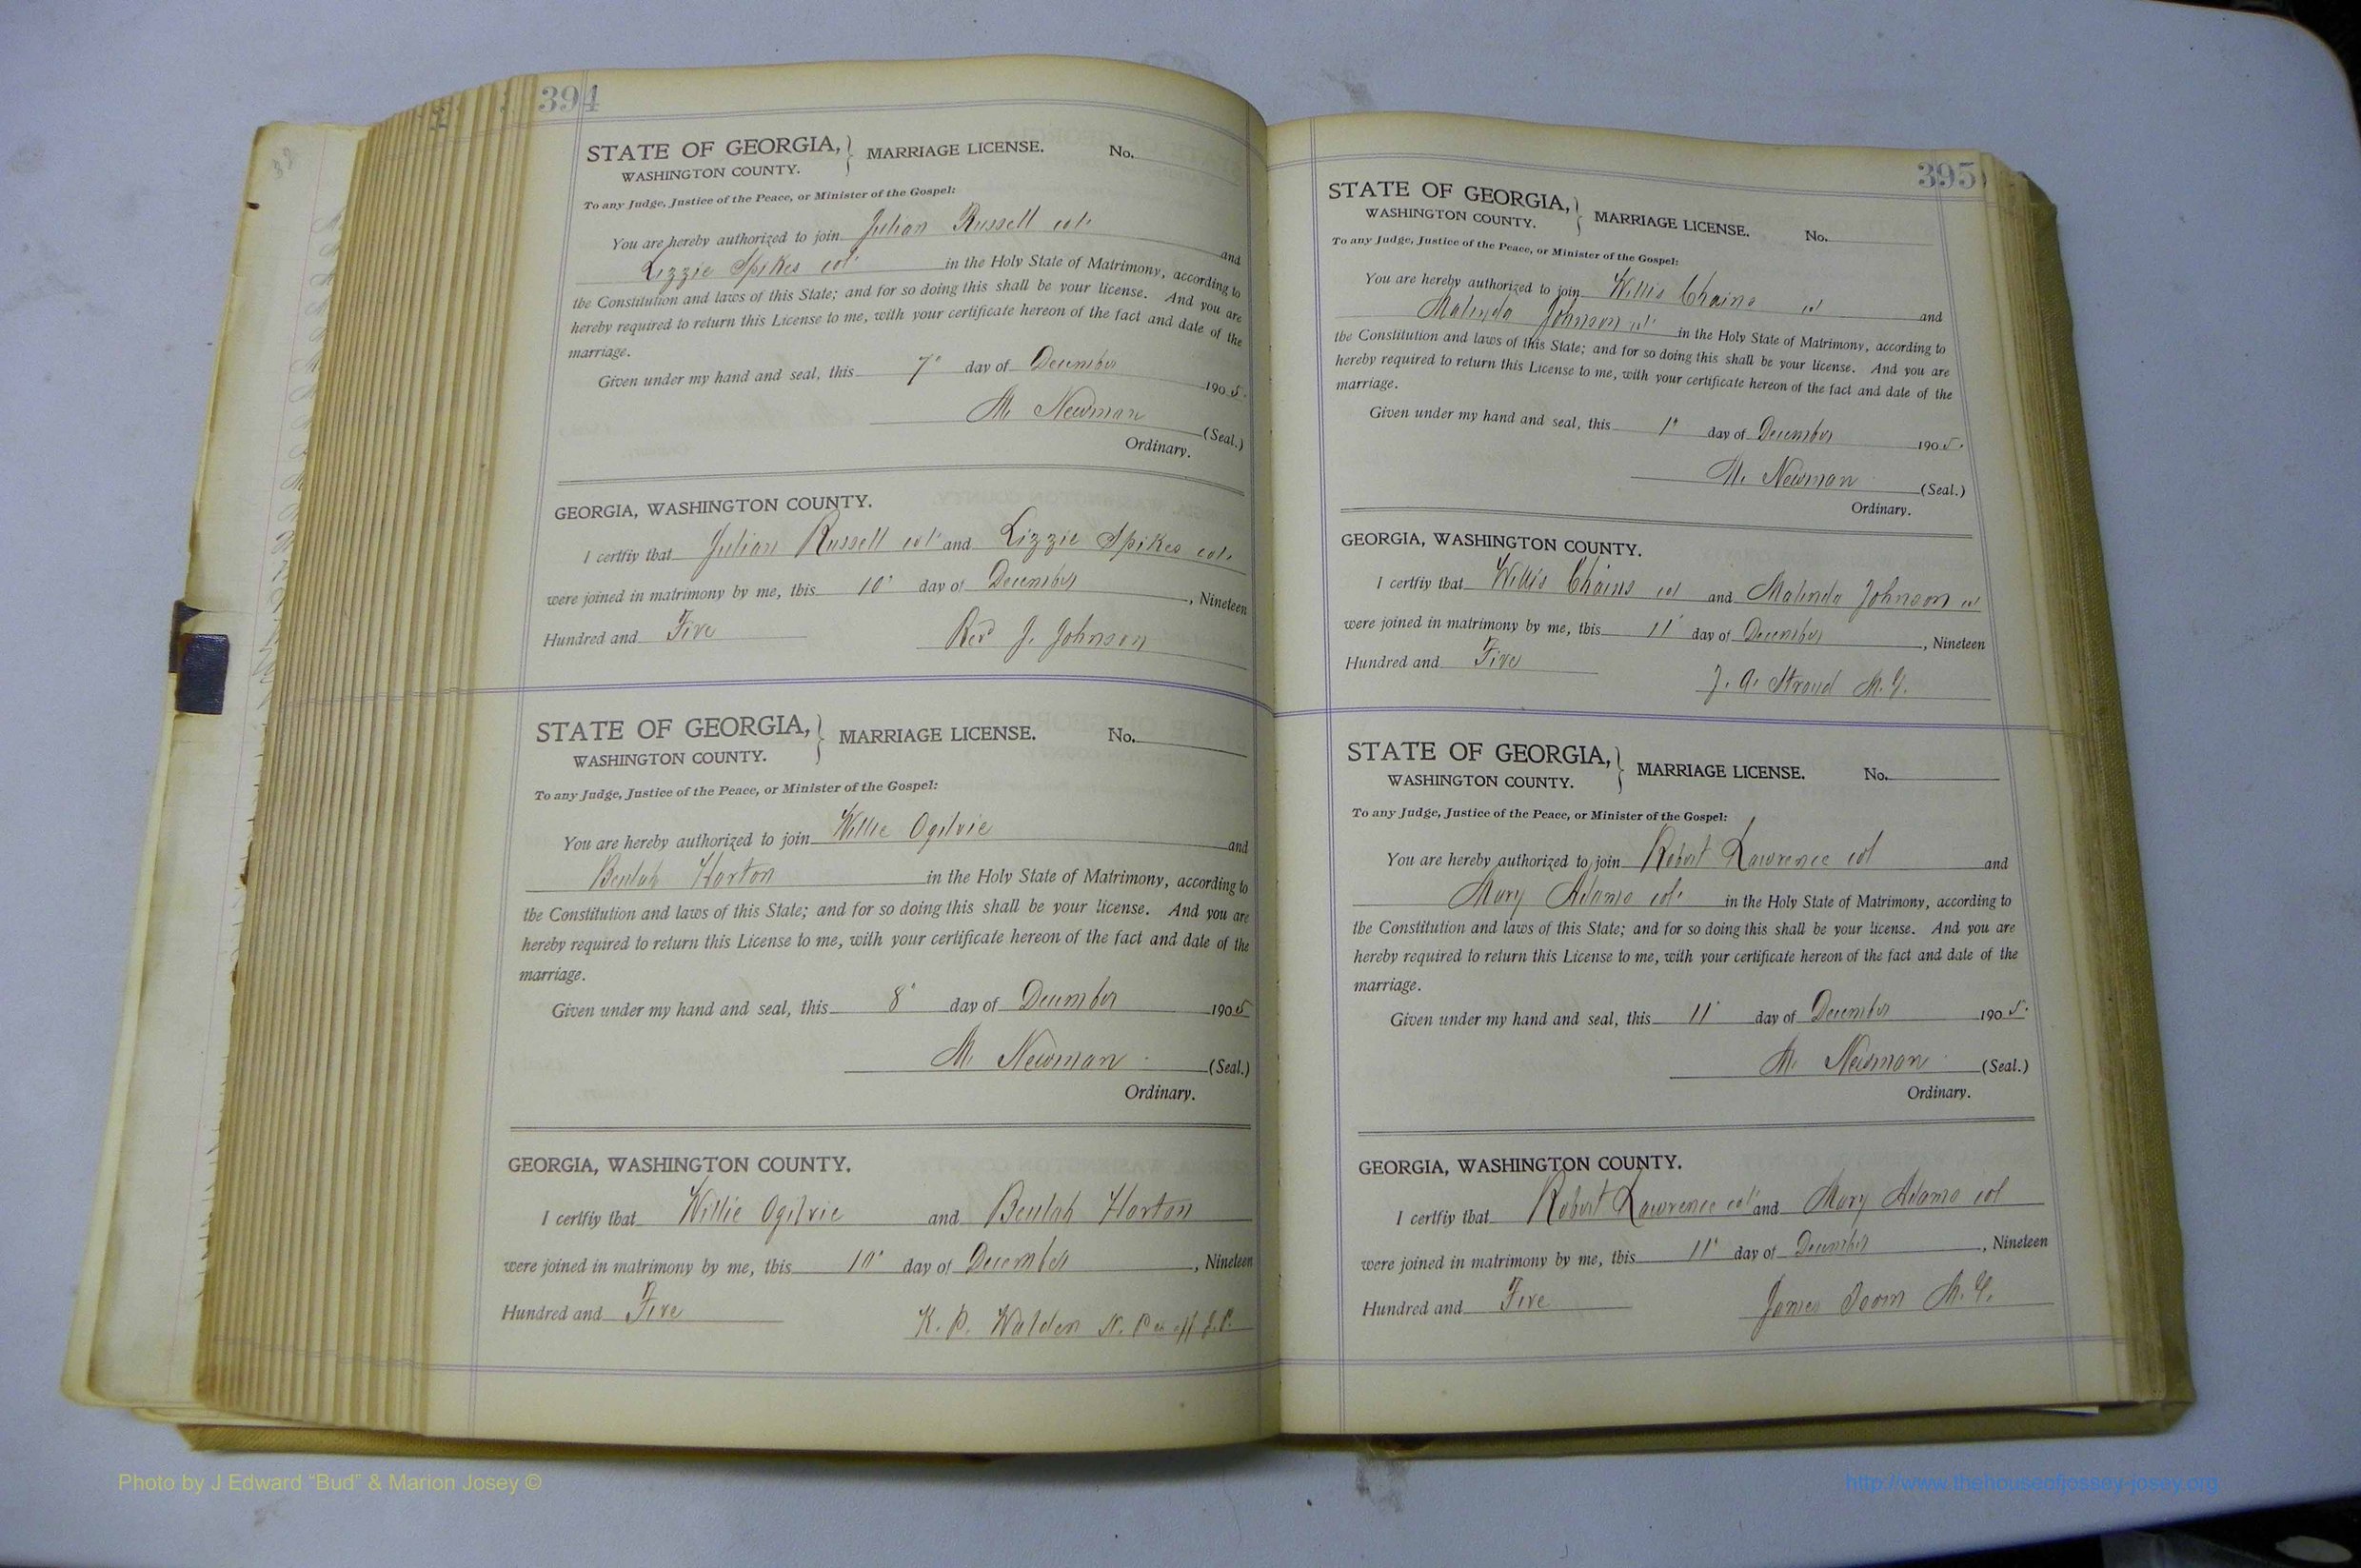 394
STATE OF GEORGIA, } MARRIAGE LICENSE. No.
WASHINGTON COUNTY.
To any Judge, Justice of the Peace, or Minister of the Gospel:
You are hereby authorized to join Julian Russell col' and
Lizzie Spikes col' in the Holy State of Matrimony, according to
the Constitution and laws of this State; and for so doing this shall be your license. And you are
hereby required to return this License to me, with your certificate hereon of the fact and date of the
marriage.
Given under my hand and seal, this 7" day of December 1905.
M. Newman (Seal.)
Ordinary.
GEORGIA, WASHINGTON COUNTY.
I certfiy that Julian Russell col' and Lizzie Spikes col.
were joined in matrimony by me, this 10' day of December, Nineteen
Hundred and Five Revd J. Johnson
STATE OF GEORGIA, } MARRIAGE LICENSE. No.
WASHINGTON COUNTY.
To any Judge, Justice of the Peace, or Minister of the Gospel:
You are hereby authorized to join Willie Ogilvie and
Beulah Horton in the Holy State of Matrimony, according to
the Constitution and laws of this State; and for so doing this shall be your license. And you are
hereby required to return this License to me, with your certificate hereon of the fact and date of the
marriage.
Given under my hand and seal, this 8" day of December 1905
M. Newman (Seal.)
Ordinary.
GEORGIA, WASHINGTON COUNTY.
I certfiy that Willie Ogilvie and Beulah Horton
were joined in matrimony by me, this 10' day of December, Nineteen
Hundred and Five K. P. Walden N. P. J.P.
395
STATE OF GEORGIA, } MARRIAGE LICENSE. No.
WASHINGTON COUNTY.
To any Judge, Justice of the Peace, or Minister of the Gospel:
You are hereby authorized to join Willis Chains col and
Malinda Johnson col' in the Holy State of Matrimony, according to
the Constitution and laws of this State; and for so doing this shall be your license. And you are
hereby required to return this License to me, with your certificate hereon of the fact and date of the
marriage.
Given under my hand and seal, this 1" day of December 1905.
M. Newman (Seal.)
Ordinary.
GEORGIA, WASHINGTON COUNTY.
I certfiy that Willis Chains col and Malinda Johnson col
were joined in matrimony by me, this 11' day of December, Nineteen
Hundred and Five J. A. Stroud M. G.
STATE OF GEORGIA, } MARRIAGE LICENSE. No.
WASHINGTON COUNTY.
To any Judge, Justice of the Peace, or Minister of the Gospel:
You are hereby authorized to join Robert Lawrence col and
Mary Adams col' in the Holy State of Matrimony, according to
the Constitution and laws of this State; and for so doing this shall be your license. And you are
hereby required to return this License to me, with your certificate hereon of the fact and date of the
marriage.
Given under my hand and seal, this 11' day of December 1905.
M. Newman (Seal.)
Ordinary.
GEORGIA, WASHINGTON COUNTY.
I certfiy that Robert Lawrence col' and Mary Adams col
were joined in matrimony by me, this 11' day of December, Nineteen
Hundred and Five James M. G.
Photo by J Edward “Bud” & Marion Josey ©
http://www.thehouseofjossey-josey.org